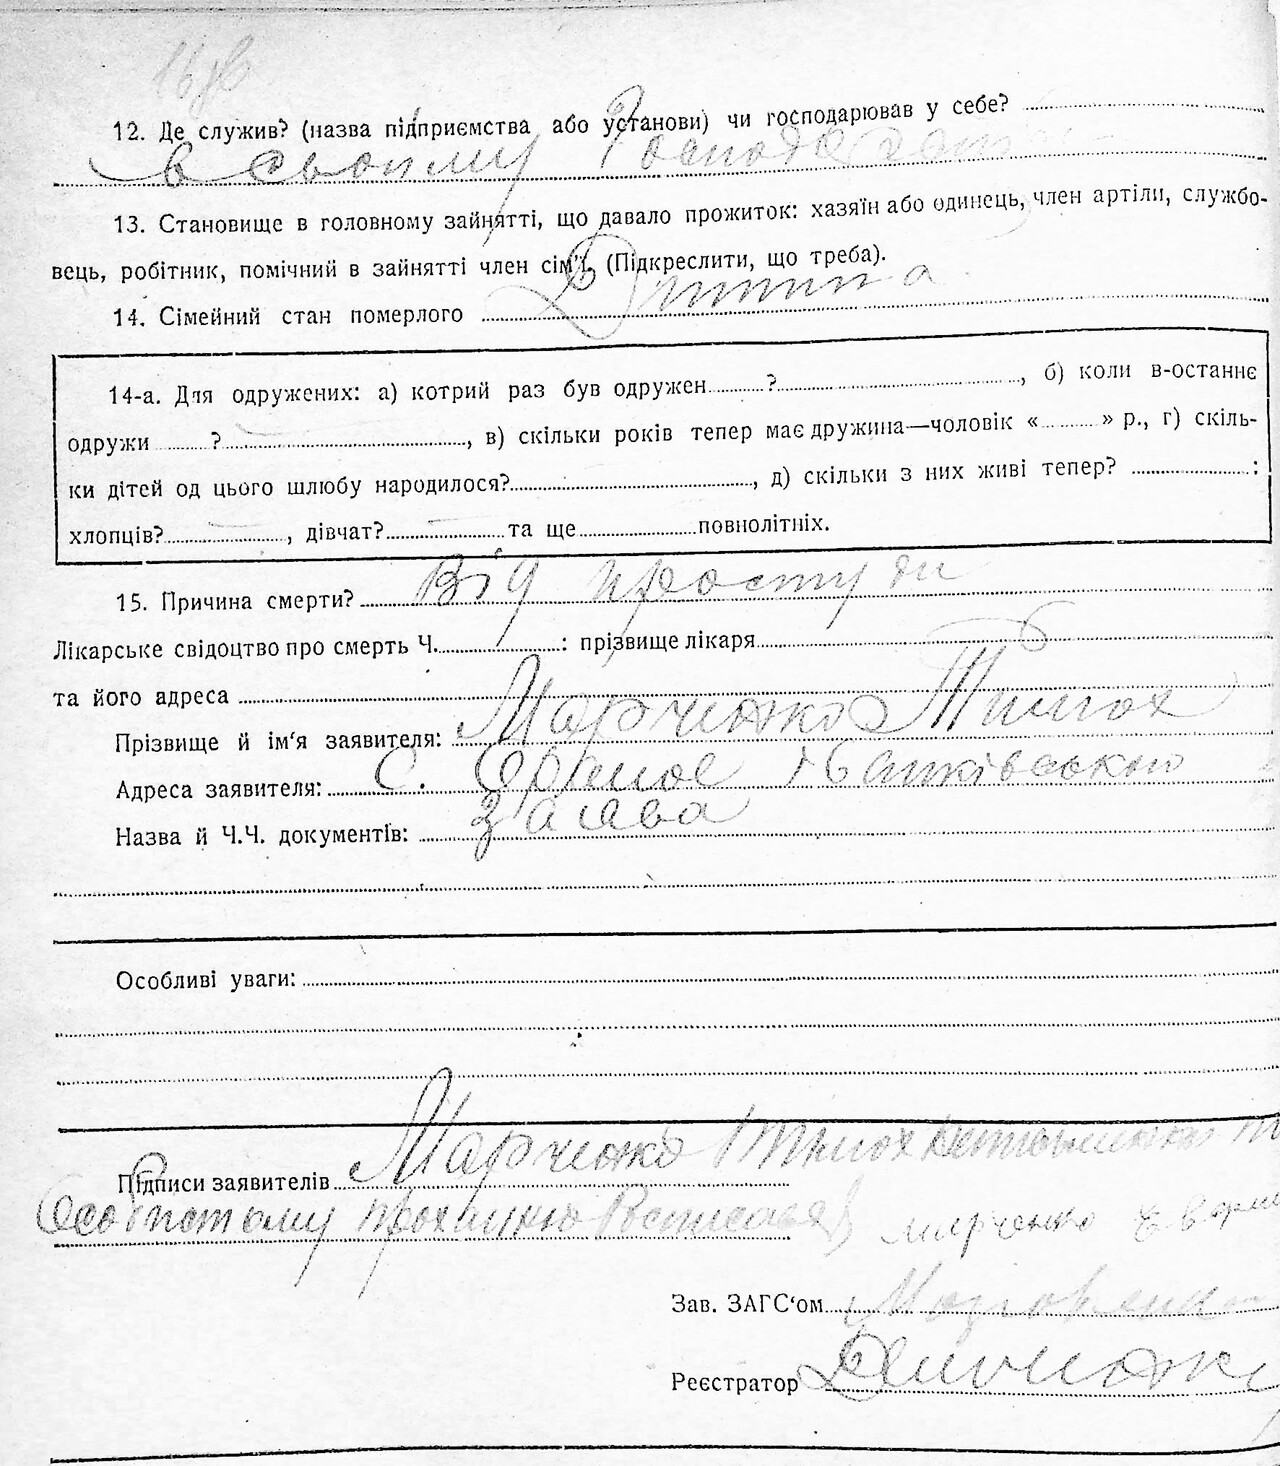 12. Де служив? (назва підприємства або установи) чи господарював у себе?
в своєму Господарстві
13. Становище в головному зайнятті, що давало прожиток: хазяїн або одинець, член артіли, службо-
вець, робітник, помічний в зайнятті член сім'ї. (Підкреслити, що треба).
14. Сімейний стан померлого Дитина
14-а. Для одружених: а) котрий раз був одружен ? , б) коли в-останнє
одружи ? , в) скільки років тепер має дружина—чоловік « » р., г) скіль-
ки дітей од цього шлюбу народилося? , д) скільки з них живі тепер? :
хлопців? , дівчат? та ще повнолітніх.
15. Причина смерти? Від простуди
Лікарське свідоцтво про смерть Ч. : прізвище лікаря
та його адреса
Прізвище й ім'я заявителя: Марченко Тимох
Адреса заявителя: С.
Назва й Ч.Ч. документів: заява
Особливі уваги:
Підписи заявителів Марченко Тимох
Особистому
Марченко
Зав. ЗАГС'ом
Реєстратор